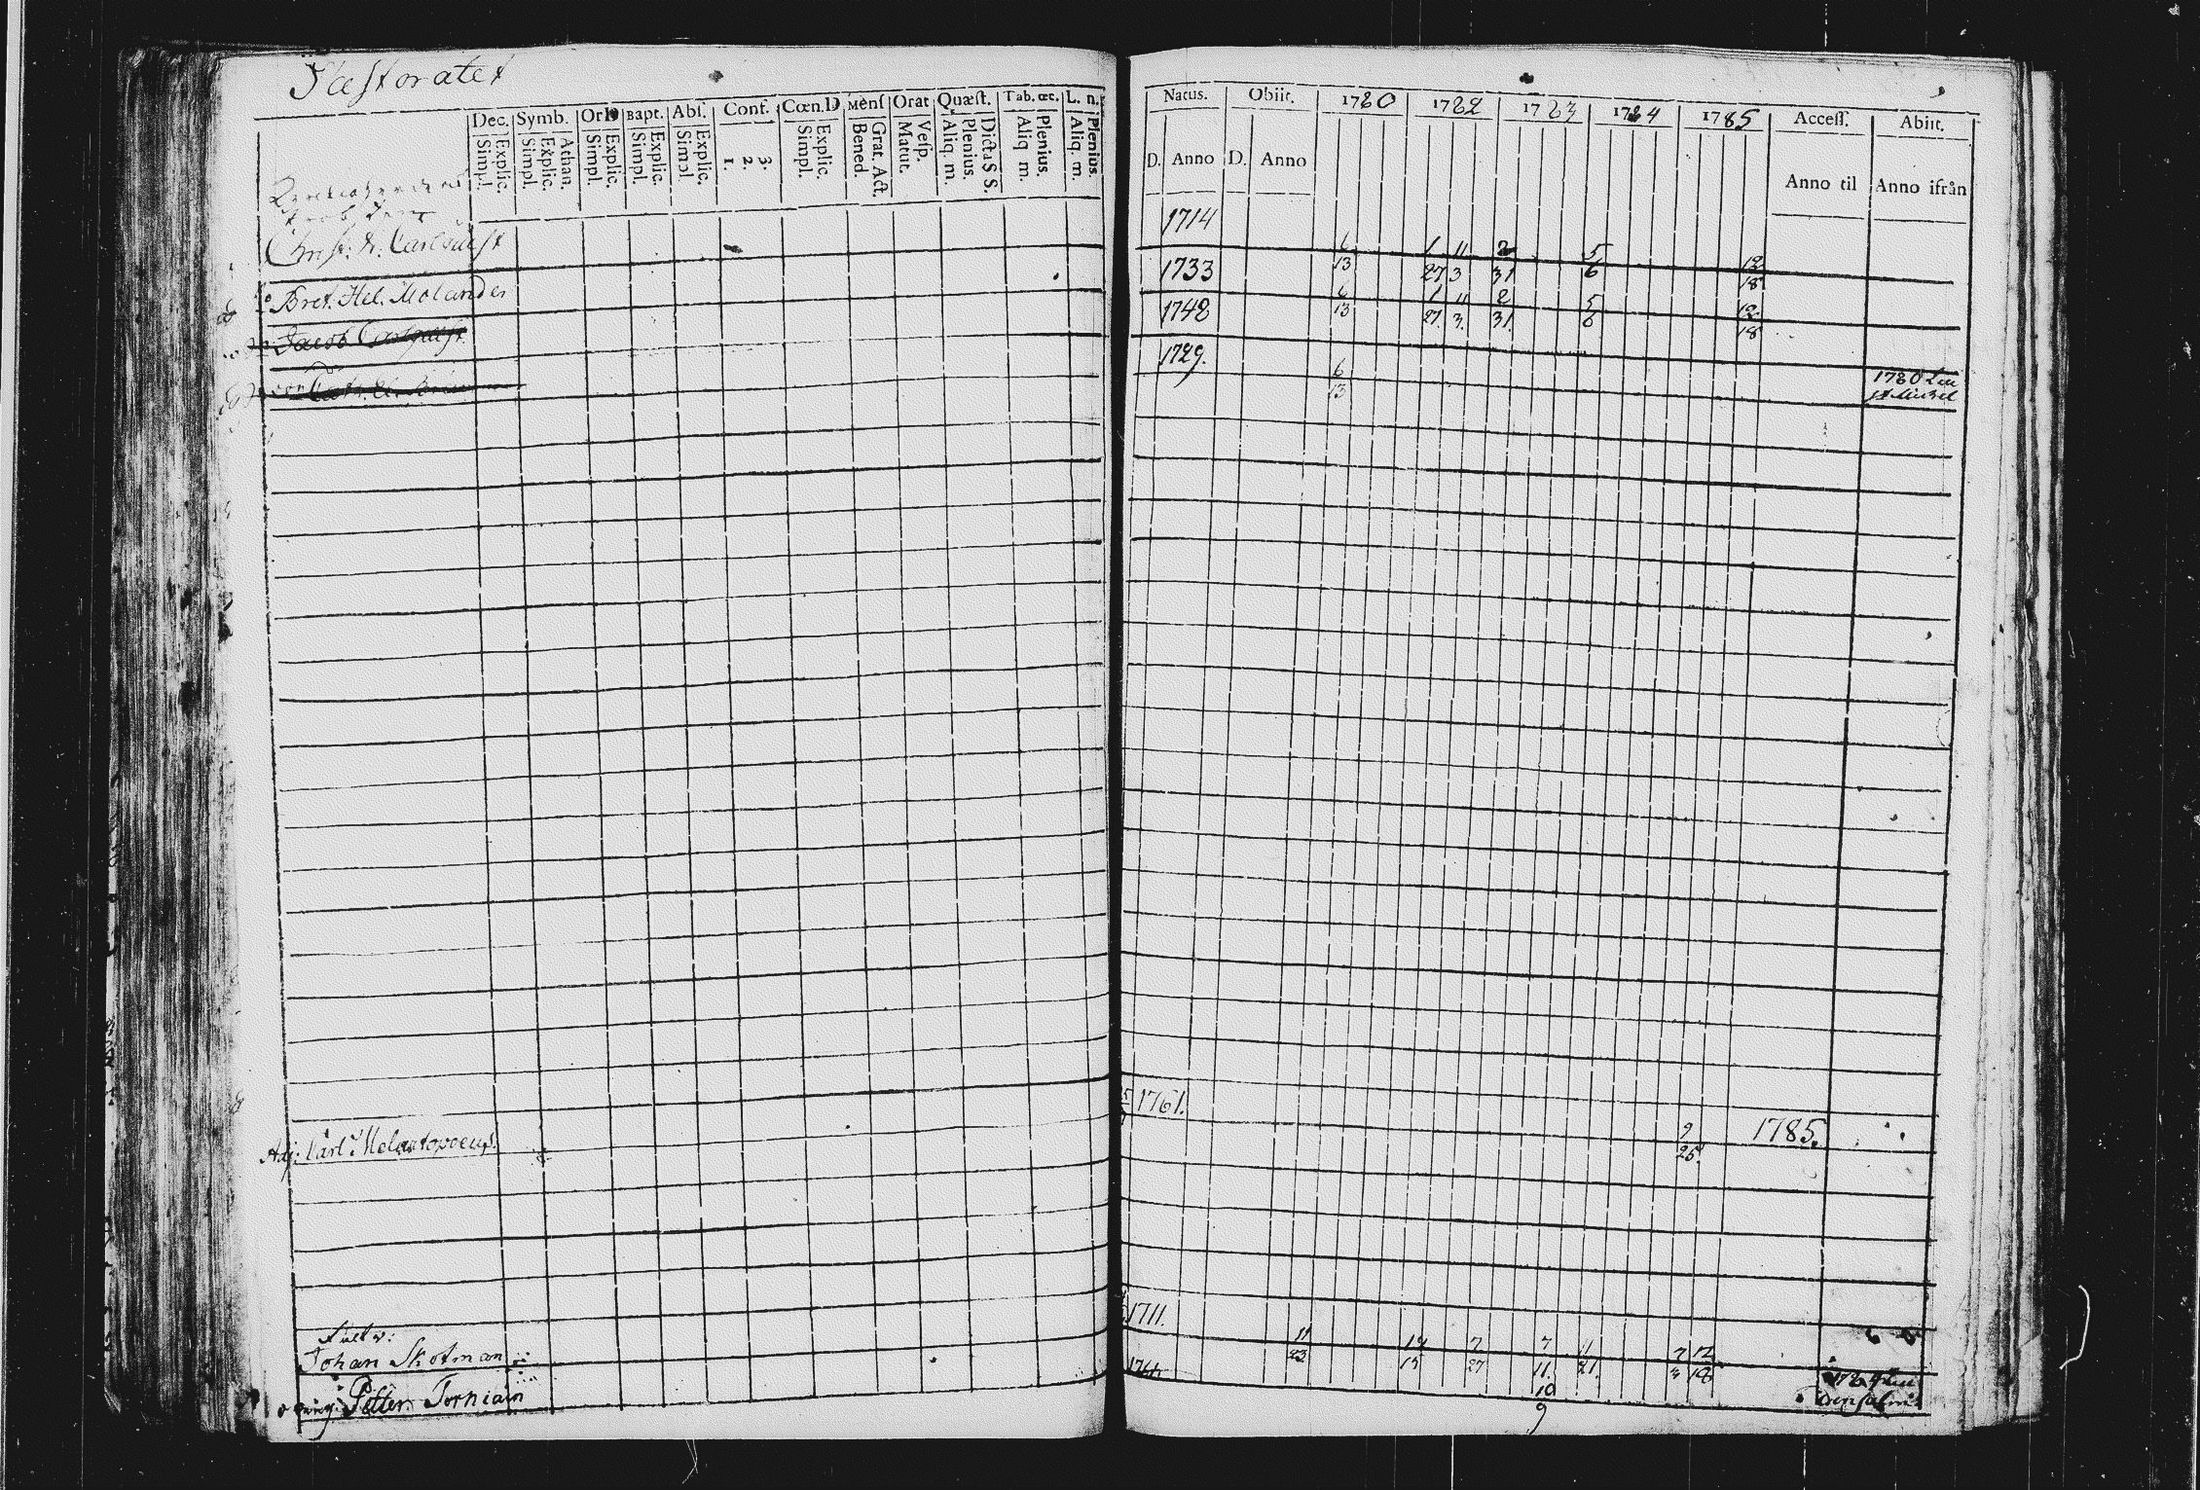 Pastoratet
Dec. Symb. Or D Bapt. Abs. Conf. Cœn. D Mens Orat Quæst. Tab. œc. L. n.
Simpl. Explic. Simpl. Explic. Athan. Simpl. Explic. Simpl. Explic. Simpl Explic. 1. 2. 3. Simpl. Explic. Bened Grat. Act. Matut. Vesp. Aliq. m. Plenius. Dicta S S. Aliq m. Plenius. Aliq. m. Plenius.
Christ. Carlquist
Bret. Hel. Molander
Jacob Carlquist
Adj: Carl Melartopoeus.
Johan Skotman
Petter Torniain
Natus. Obiit. 1780 1782 1783 1784 1785 Access. Abiit.
D. Anno D. Anno Anno til Anno ifrån
1714
6 1 11 2 5 12
1733 13 27 3 31 6 18
6 1 11 2 5 12
1742 13 27. 3. 31. 6 18
1729.
6 1780
13 St Michel
1761.
9 1785.
25.
1711.
11 12 7 7 11 7 12
23 15 27 11. 21. 18
10
9